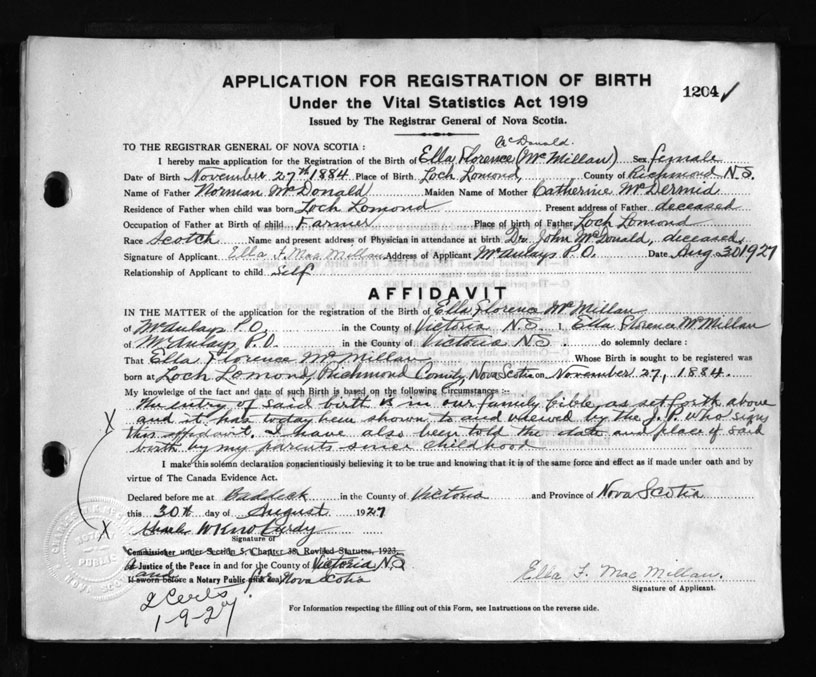 APPLICATION FOR REGISTRATION OF BIRTH
1204 ✓
Under the Vital Statistics Act 1919
Issued by The Registrar General of Nova Scotia.
McDonald.
TO THE REGISTRAR GENERAL OF NOVA SCOTIA :
I hereby make application for the Registration of the Birth of Ella Florence (McMillan) Sex female
Date of Birth November 27th 1884 Place of Birth Loch Lomond, County of Richmond N.S.
Name of Father Norman McDonald Maiden Name of Mother Catherine McDermid
Residence of Father when child was born Loch Lomond Present address of Father deceased
Occupation of Father at Birth of child Farmer Place of birth of Father Loch Lomond
Race Scotch Name and present address of Physician in attendance at birth Dr. John McDonald, deceased
Signature of Applicant Ella F. MacMillan Address of Applicant McAulays P.O. Date Aug 30 1927
Relationship of Applicant to child Self
AFFIDAVIT
IN THE MATTER of the application for registration of the Birth of Ella Florence McMillan
of McAulays P.O. in the County of Victoria N.S. I, Ella Florence McMillan
of McAulays P.O. in the County of Victoria N.S. do solemnly declare :
That Ella Florence McMillan Whose Birth is sought to be registered was
born at Loch Lomond, Richmond County, Nova Scotia on November 27, 1884.
My knowledge of the fact and date of such Birth is based on the following Circumstances :-
The entry of said birth is in our family bible, as set forth above
and it has today been shown to and viewed by the J.P. who signs
this affidavit. I have also been told the date and place of said
birth by my parents since childhood
I make this solemn declaration conscientiously believing it to be true and knowing that it is of the same force and effect as if made under oath and by
virtue of The Canada Evidence Act.
Declared before me at Baddeck in the County of Victoria and Province of Nova Scotia
this 30th day of August 1927
Signature of
Commissioner under Section 5, Chapter 38, Revised Statutes, 1923.
A Justice of the Peace in and for the County of Victoria N.S.
If sworn before a Notary Public
and for Nova Scotia
Ella F. MacMillan.
Signature of Applicant.
2 Certs.
1-9-27
For Information respecting the filling out of this Form, see Instructions on the reverse side.